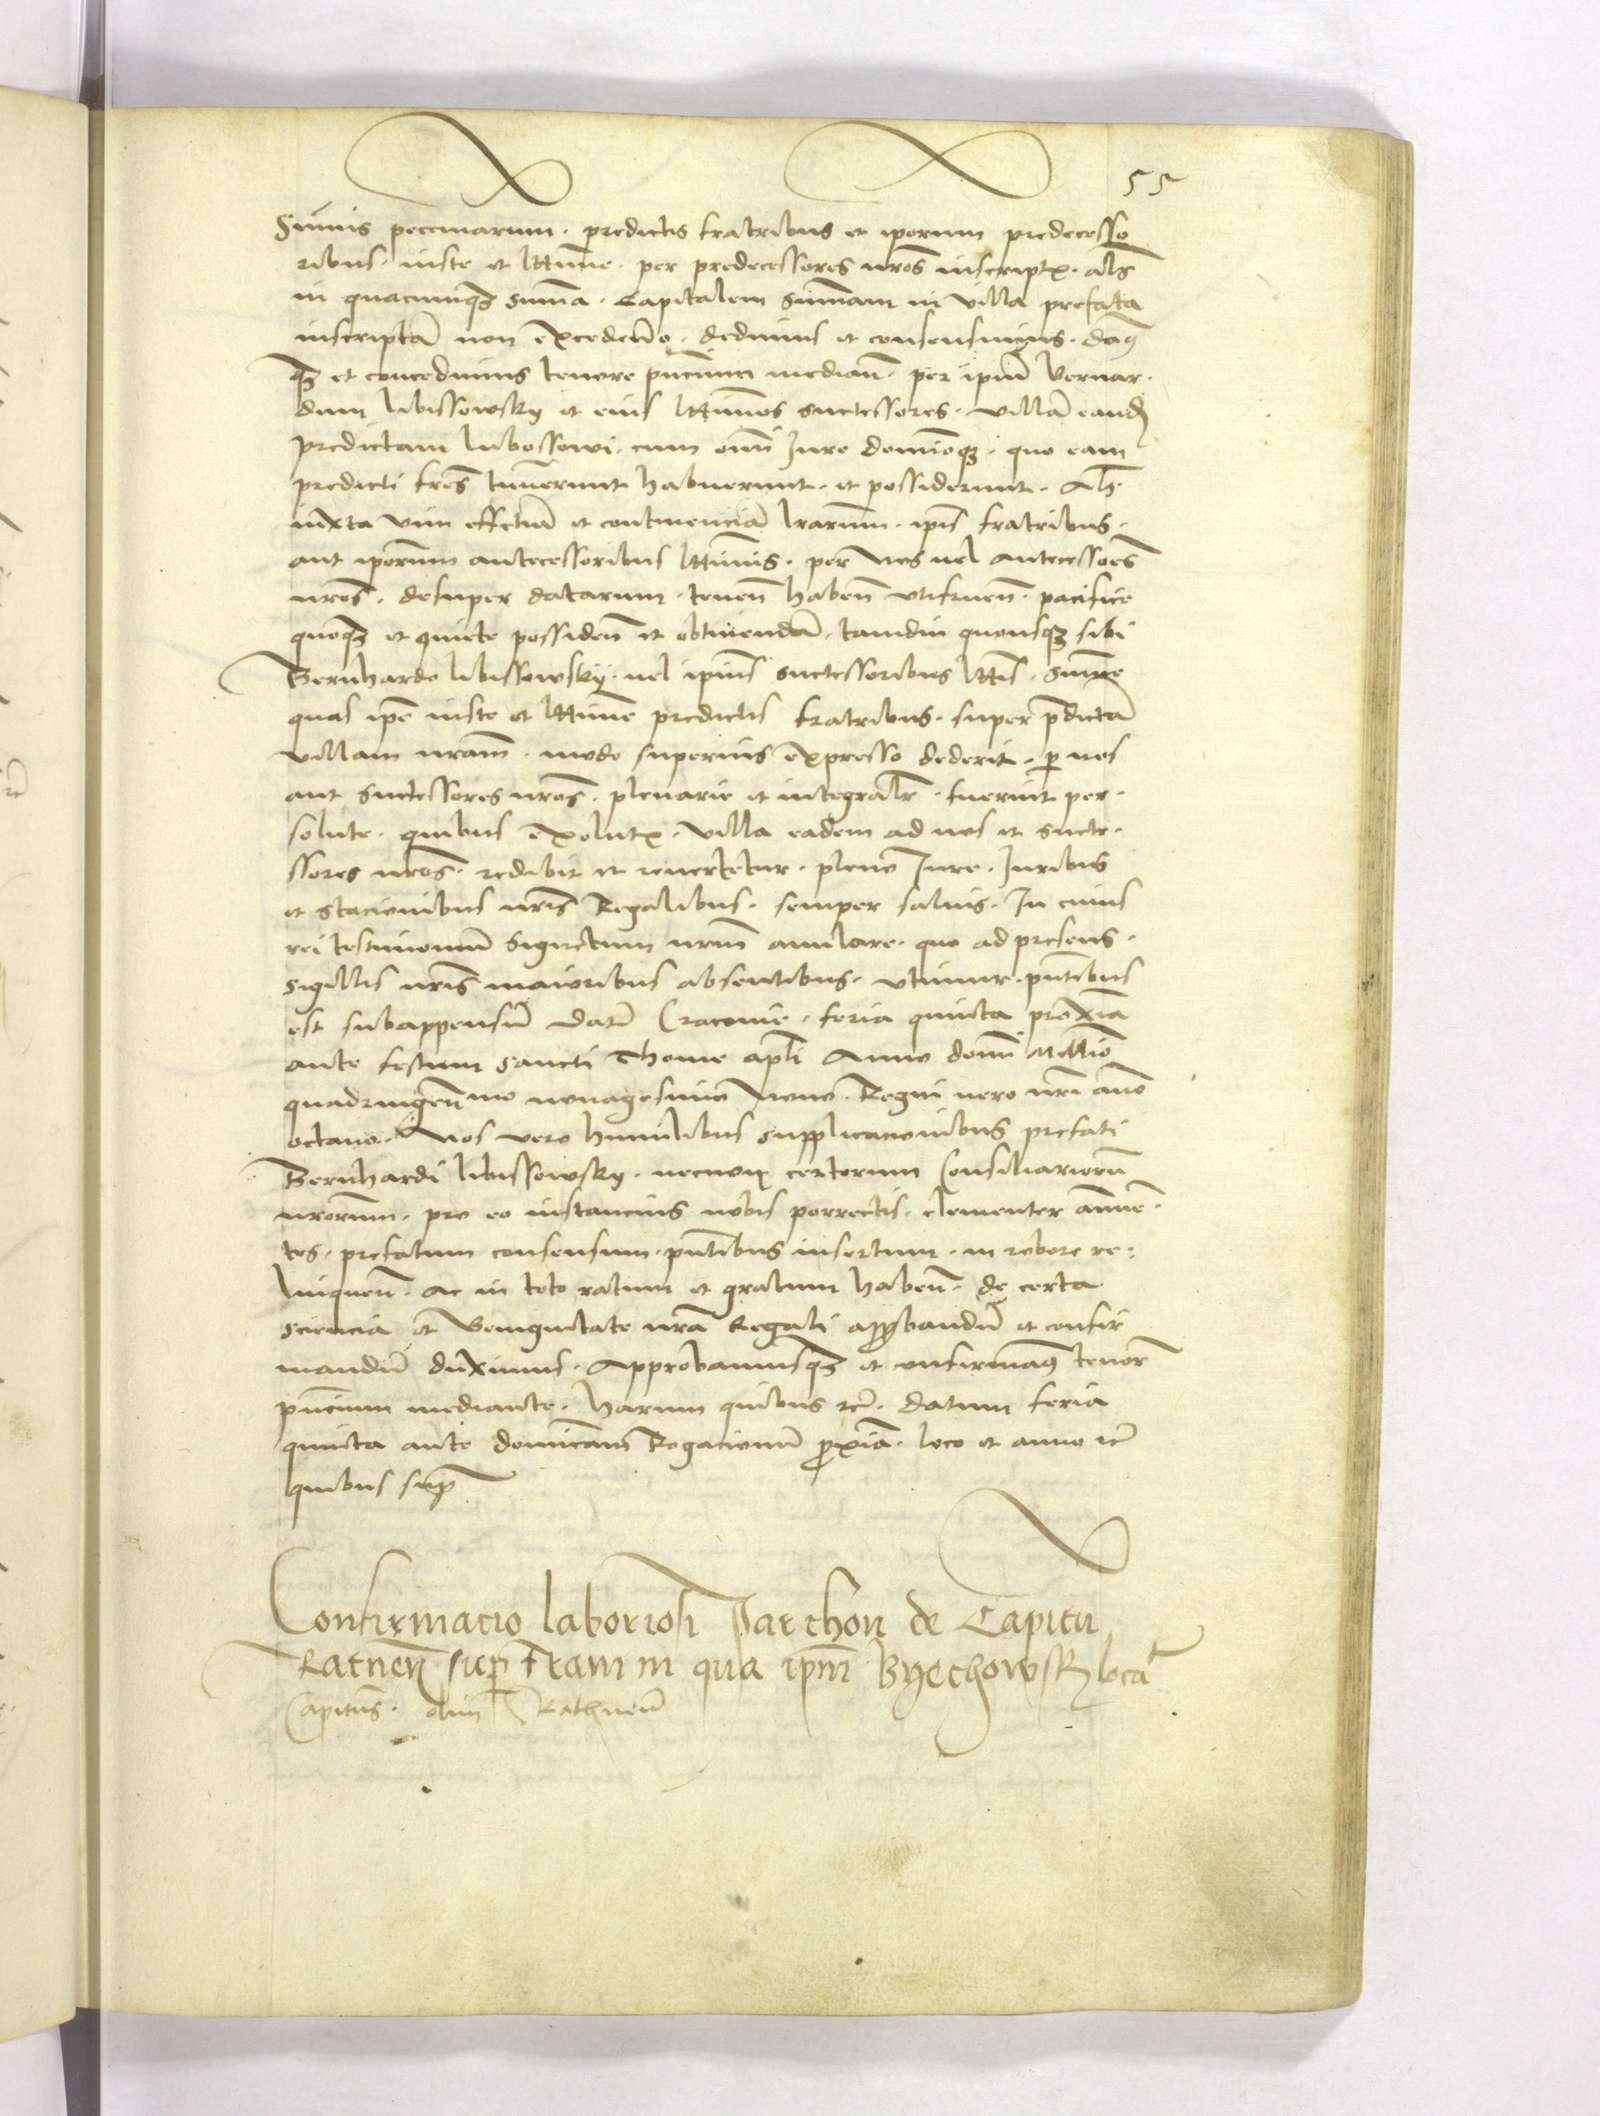 55
Sum̄is pecuniarum · predictis fratribus et ip̄orum predecesso
ribus · iuste et l̄ttime · per predecessores nr̄os inscriptis · al̄s
in quacunqꝫ sum̄a · Capitalem sum̄am in villa prefata
inscriptā non excedente · dedimus et consensimus · damꝰ
qꝫ et concedimus tenore pn̄cium median̄ · per ip̄um Bernar ·
dum libissowsky et eius l̄ttimos successores · villā eandē
predictam lubossowi · cum om̄i Iure dominioqꝫ · quo eam
predicti fr̄es tenuerunt habuerunt · et possiderunt · Al̄s
iuxta vim effectū et continenciā l̄rarum · ip̄is fratribus ·
aut ip̄orum antecessoribus l̄ttimis · per nos uel antecessores
nr̄os · desuper datarum · tenen̄ haben̄ utifruen̄ · pacifice
quoqꝫ et quiete possiden̄ et obtinendā · tamdiu quousqꝫ sibi
Bernhardo libissowsky · uel ip̄ius successoribus l̄ttis · sum̄e
quas ip̄e iuste et l̄ttime predictis fratribus · super p̄dictā
villam nr̄am · modo superius expresso dederit · ꝑ nos
aut successores nr̄os · plenarie et integralr̄ · fuerint per ·
solute · quibus exolutis · villa eadem ad nos et succe ·
ssores nr̄os · redibit et reuertetur · pleno Iure · Iuribus
et stacionibus nr̄is Regalibus · semper saluis · In cuius
rei testimoniū Signetum nr̄m anulare · quo ad presens ·
sigillis nr̄is maioribus absentibus · utimur · pn̄tibus
est subappensū Datū Cracouie · feria quinta proxīa
ante festum sancti Thome apl̄i Anno domī Millīo
quadringen̄mo nonagesimo Nono · Regni uero nr̄i āno
octauo · Nos vero humilibus supplicacionibus prefati
Bernhardi libissowsky · necnon certorum Consiliariorū
nr̄orum · pro eo instancius nobis porrectis · clementer ānuē ·
tes · prefatum consensum · pn̄tibus insertum · in robore re :
linquen̄ · Ac in toto ratum et gratum haben̄ · de certa
sciencia et Benignitate nr̄a Regali approbandū et confir
mandū duximus · Approbamusqꝫ et confirmamꝰ tenor̄
pn̄cium mediante · harum quibus rc̄ · Datum feria
quinta ante dominicam Rogacionū ꝓxīā · loco et anno rc̄
quibus sup̄
Confirmacio laboriosi Jacchon de Capitu
Ratnen̄ suꝑ t̄ram in qua ip̄m Byechowsky loca᷑
Capitūs · olim Rathnen̄